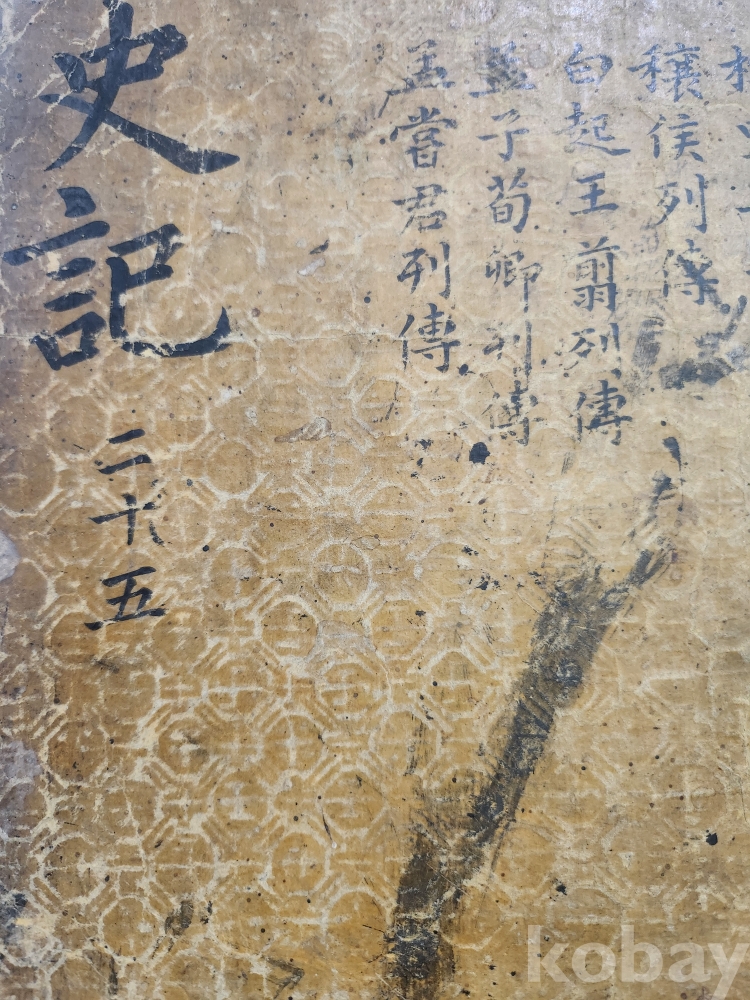 穰侯列傳
白起王翦列傳
孟子荀卿列傳
孟嘗君列傳
史記
二十五
kobay